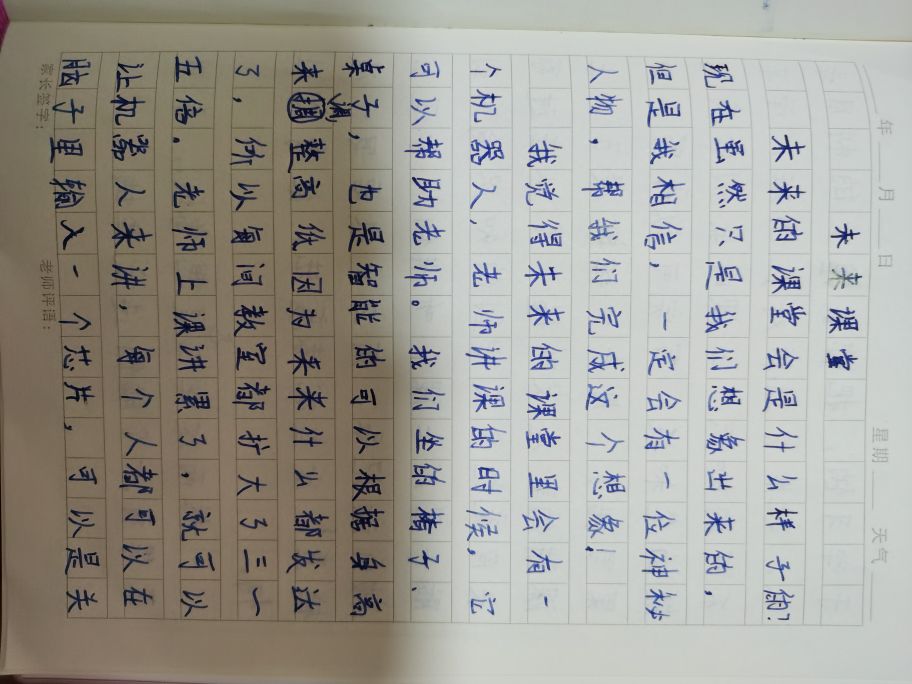 年 月 日 星期 天气
未来课堂
未来的课堂会是什么样子的?
现在虽然只是我们想象出来的,
但是我相信,一定会有一位神秘
人物,帮我们完成这个想象!
我觉得未来的课堂里会有一
个机器人,老师讲课的时候,它
可以帮助老师。我们坐的椅子、
桌子,也是智能的可以根据身高
来调整高低因为未来什么都发达
了,所以每间教室都扩大了三一
五倍。老师上课讲累了,就可以
让机器人来讲,每个人都可以在
脑子里输入一个芯片,可以是关
家长签字: 老师评语: